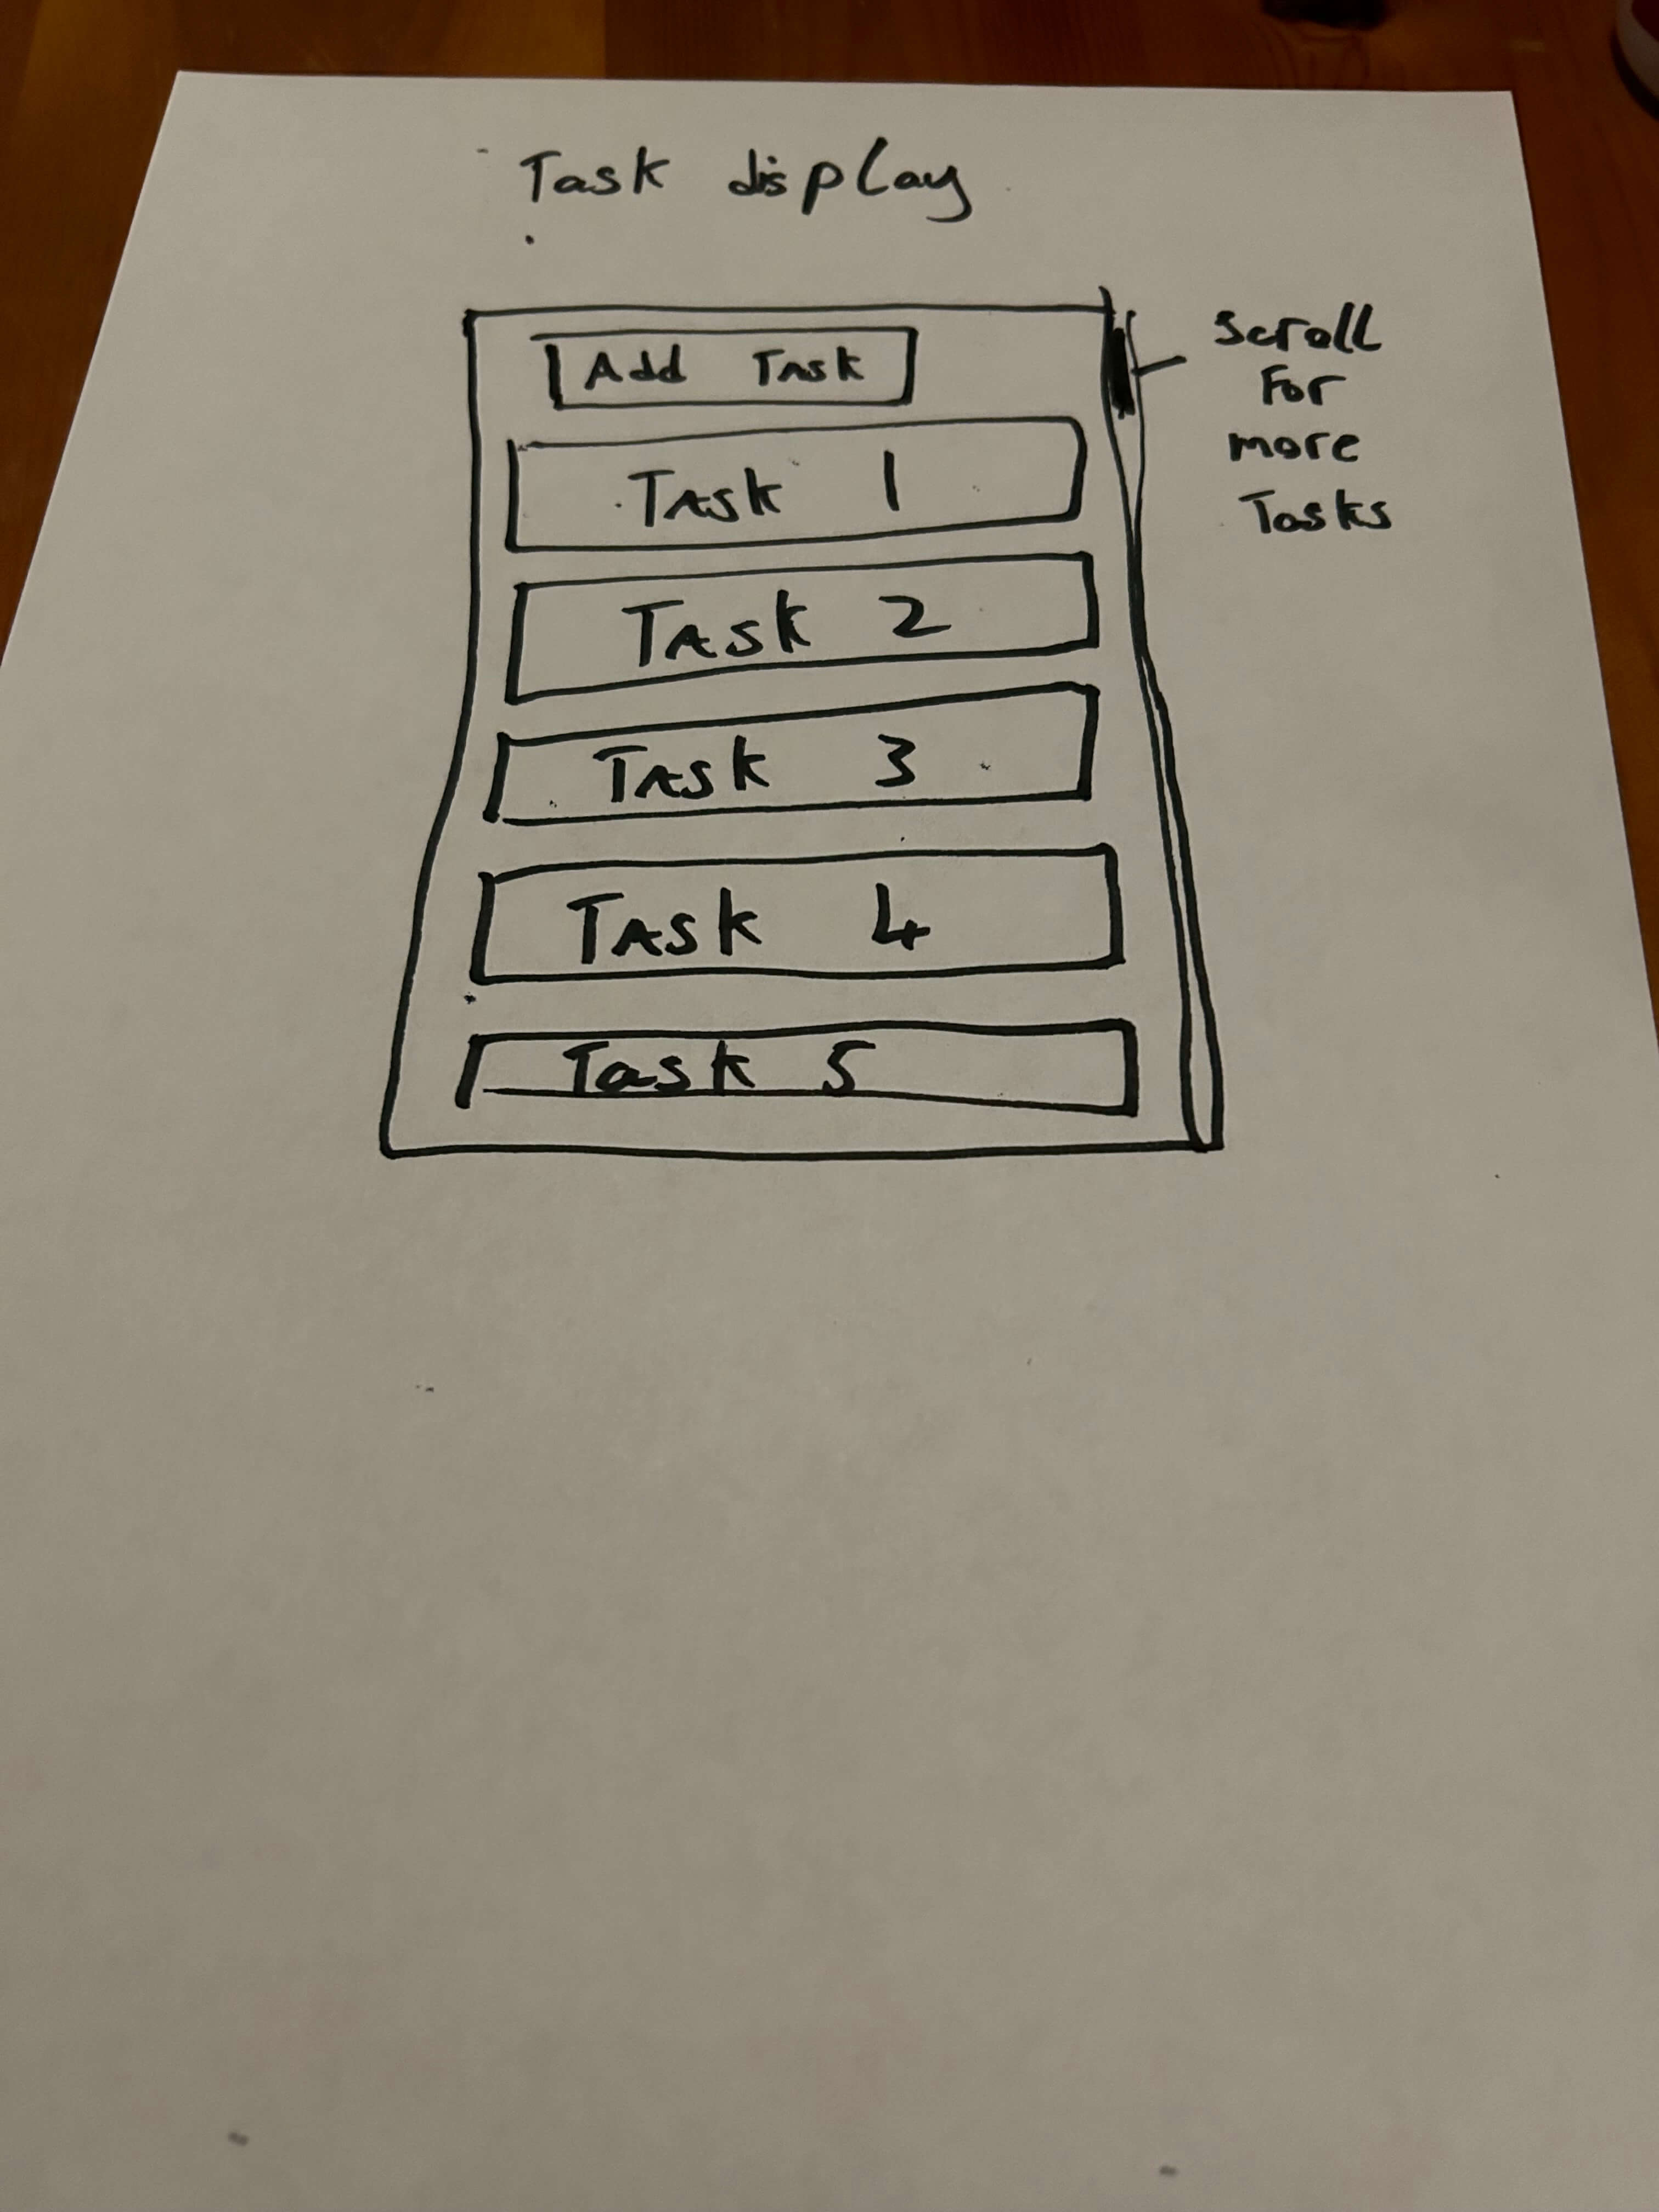 Task display
Add Task
Task 1
Task 2
Task 3
Task 4
Task 5
Scroll
For
more
Tasks